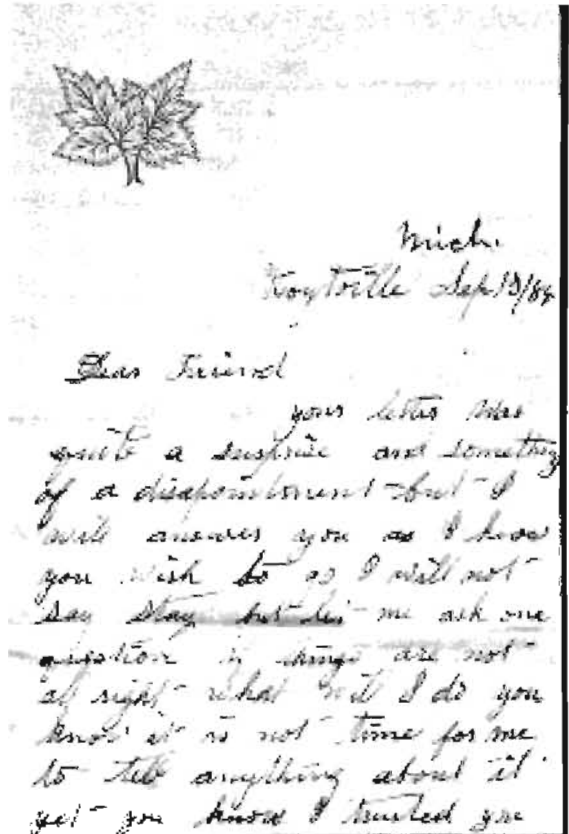 Mich.
Sep
Dear Friend
your letter was
quite a surprise and something
of a disapointment but I
will answer you as I know
you wish to go I will not
say stay but let me ask one
question if things are not
all right what will I do you
know it is not time for me
to tell anything about it
yet you know I trusted you